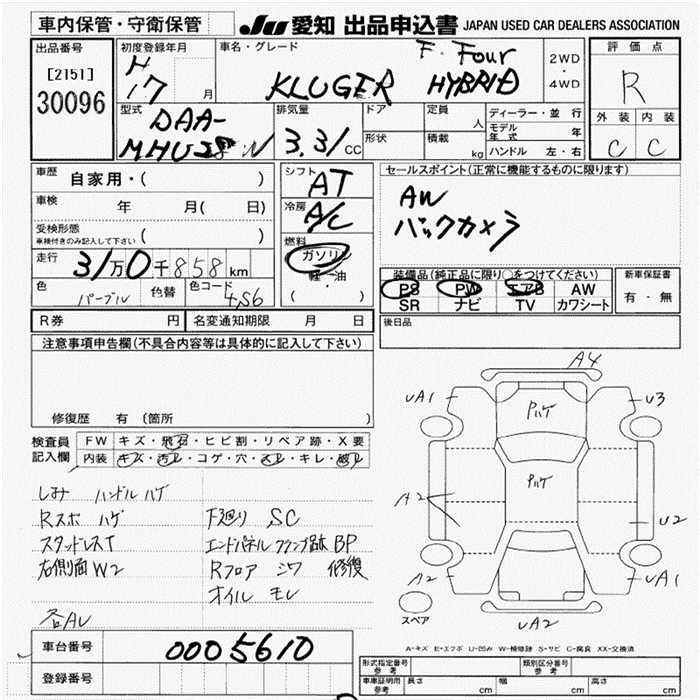 車内保管・守衛保管
JU 愛知 出品申込書 JAPAN USED CAR DEALERS ASSOCIATION
出品番号
[2151]
30096
初度登録年月
H
17 月
車名・グレード
F. Four
KLUGER HYBRID
2WD
・
4WD
評価点
R
外装 内装
C C
型式
DAA-
排気量
3.31 cc
ドア
形状
定員
人
積載
kg
ディーラー・並行
モデル年式 年
ハンドル 左・右
車歴
自家用・( )
車検
年 月( 日)
受検形態
車検付きのみ記入して下さい
( )
走行
31万0千858km
色
パープル
色替
色コード
4S6
シフト
AT
冷房
A/C
燃料
ガソリン
軽油
( )
セールスポイント(正常に機能するものに限ります)
AW
バックカメラ
装備品(純正品に限り○をつけてください)
PS PW エアB AW
SR ナビ TV カワシート
新車保証書
有・無
後日品
R券 円
名変通知期限 月 日
注意事項申告欄(不具合内容等は具体的に記入して下さい)
修復歴 有 (箇所 )
検査員
記入欄
FW キズ・飛石・ヒビ割・リペア跡・X要
内装 キズ・汚レ・コゲ・穴・スレ・キレ・破レ
しみ ハンドルハゲ
Rスポ ハゲ
スタッドレスT
右側面W2
各AU
下廻り SC
エンドパネル クランプ跡 BP
Rフロア シワ 修復
オイル モレ
A4
UA1
U3
Pハゲ
Pハゲ
A2
U2
A2
UA1
UA2
スペア
A-キズ E-エクボ U-凹み W-補修跡 S-サビ C-腐食 XX-交換済
車台番号
0005610
登録番号
形式指定番号
参考
類別区分番号
参考
車庫証明用
参考
長さ cm
幅 cm
高さ cm